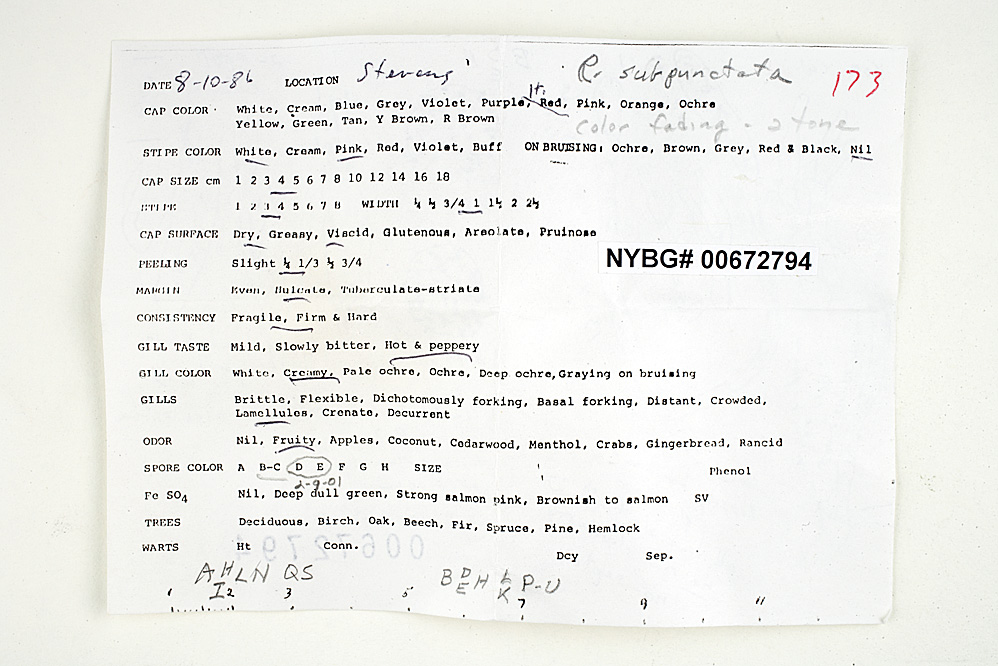 DATE 8-10-86 LOCATION Stevens' R. subpunctata 173
lt.
CAP COLOR White, Cream, Blue, Grey, Violet, Purple, Red, Pink, Orange, Ochre
Yellow, Green, Tan, Y Brown, R Brown
color fading - 2 tone
STIPE COLOR White, Cream, Pink, Red, Violet, Buff ON BRUISING: Ochre, Brown, Grey, Red & Black, Nil
CAP SIZE cm 1 2 3 4 5 6 7 8 10 12 14 16 18
STIPE 1 2 3 4 5 6 7 8 WIDTH ¼ ½ 3/4 1 1½ 2 2½
CAP SURFACE Dry, Greasy, Viscid, Glutenous, Areolate, Pruinose
NYBG# 00672794
PEELING Slight ¼ 1/3 ½ 3/4
MARGIN Even, Sulcate, Tuberculate-striate
CONSISTENCY Fragile, Firm & Hard
GILL TASTE Mild, Slowly bitter, Hot & peppery
GILL COLOR White, Creamy, Pale ochre, Ochre, Deep ochre, Graying on bruising
GILLS Brittle, Flexible, Dichotomously forking, Basal forking, Distant, Crowded,
Lamellules, Crenate, Decurrent
ODOR Nil, Fruity, Apples, Coconut, Cedarwood, Menthol, Crabs, Gingerbread, Rancid
SPORE COLOR A B-C D E F G H SIZE Phenol
2-9-01
Fe SO4 Nil, Deep dull green, Strong salmon pink, Brownish to salmon SV
TREES Deciduous, Birch, Oak, Beech, Fir, Spruce, Pine, Hemlock
WARTS Ht Conn. Dcy Sep.
00672794
A H L N Q S B D H L P-U
I E K
1 2 3 5 7 9 11